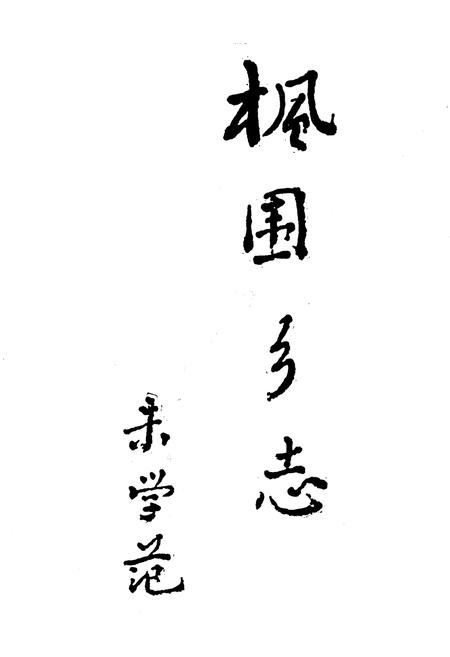 楓围乡志
朱学范